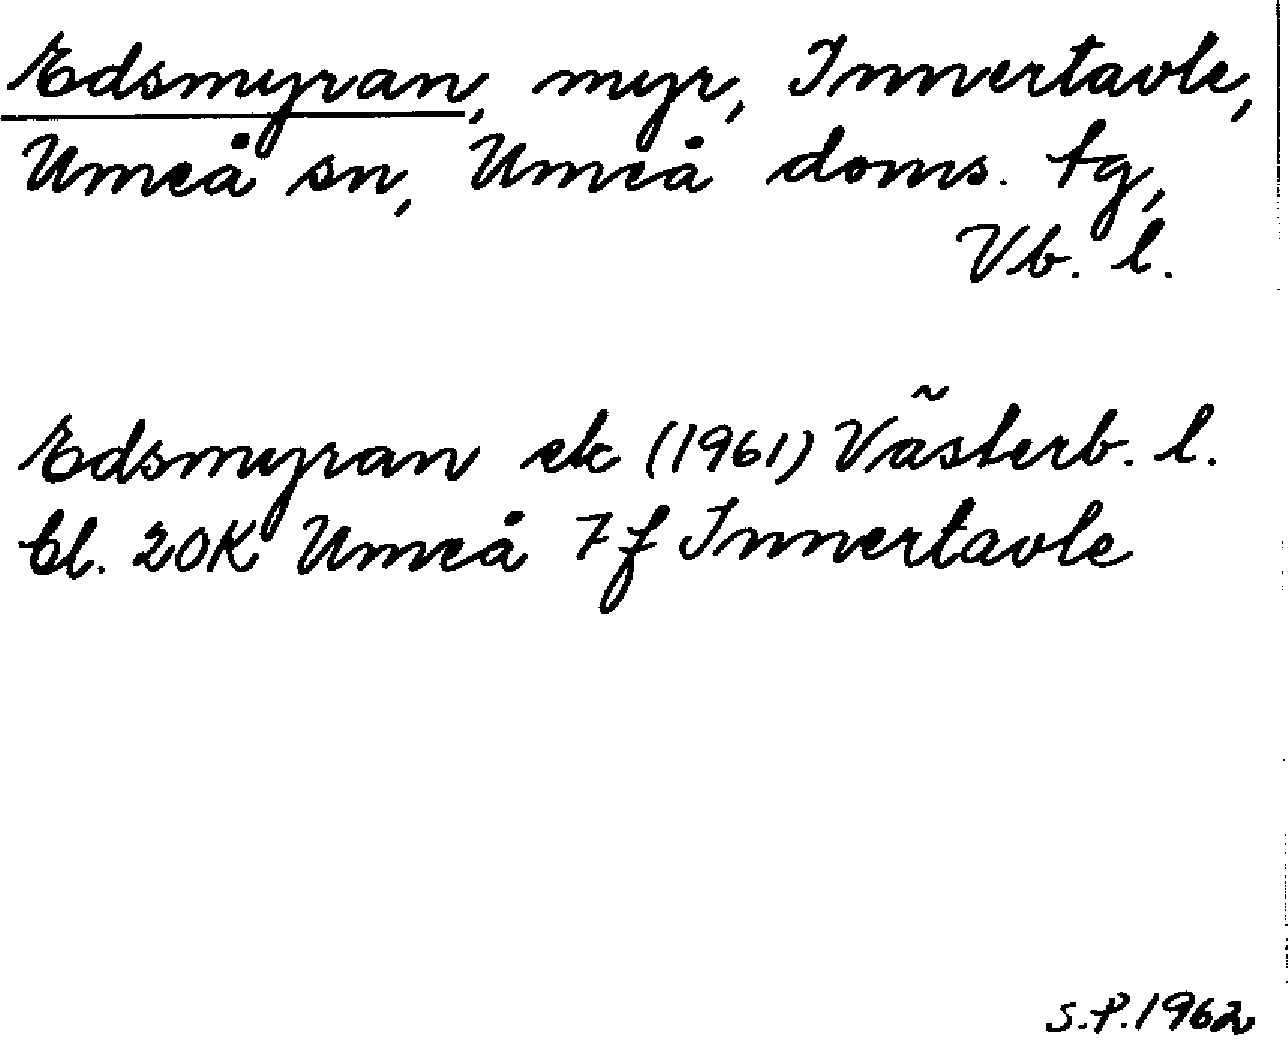 Edsmyran, myr, Innertavle,
Umeå sn, Umeå doms. tg,
Vb. l.
Edsmyran ek (1961) Västerb. l.
bl. 20K Umeå 7f Innertavle
S.P. 1962